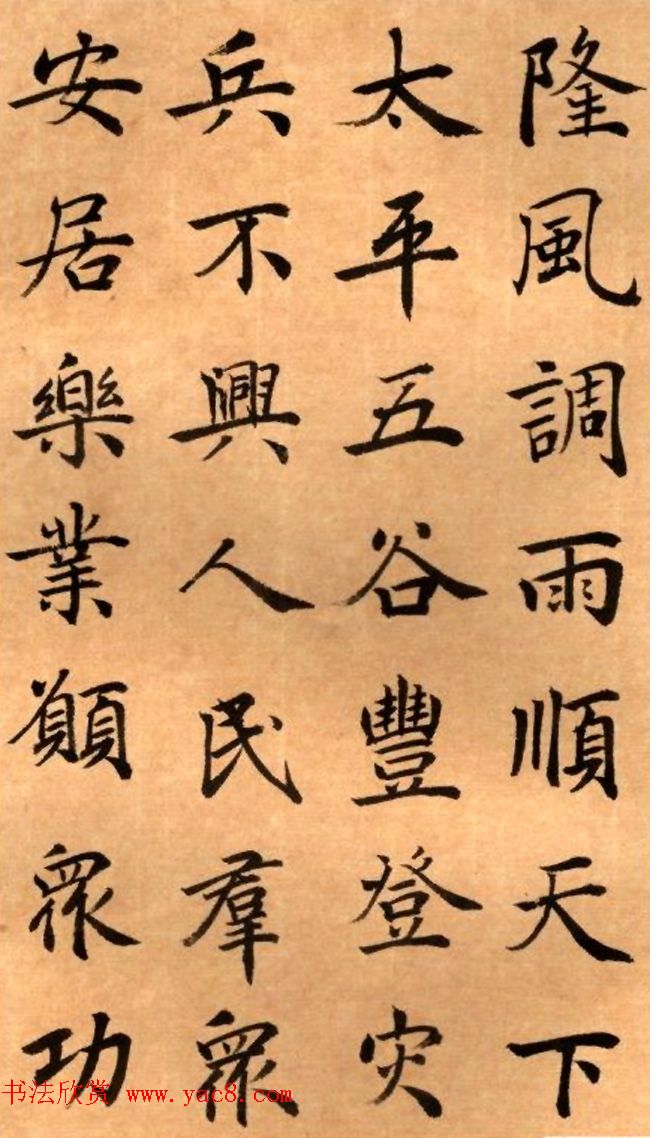 隆風調雨順天下
太平五谷豐登灾
兵不興人民羣衆
安居樂業願衆功
书法欣赏 www.yac8.com